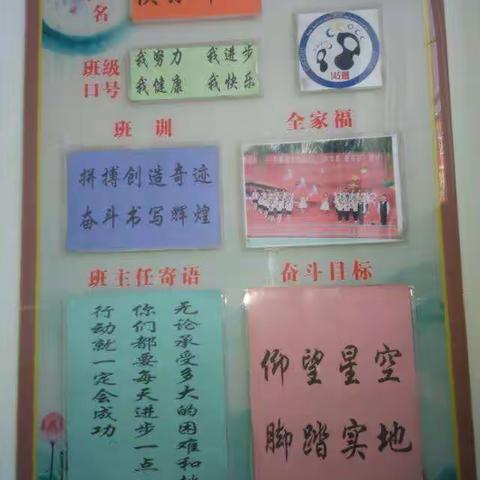 名
班级
口号
我努力 我进步
我健康 我快乐
145班
班 训
全家福
拼搏创造奇迹
奋斗书写辉煌
班主任寄语
奋斗目标
无论承受多大的困难和
你们都要每天进步一点
行动就一定会成功
仰望星空
脚踏实地